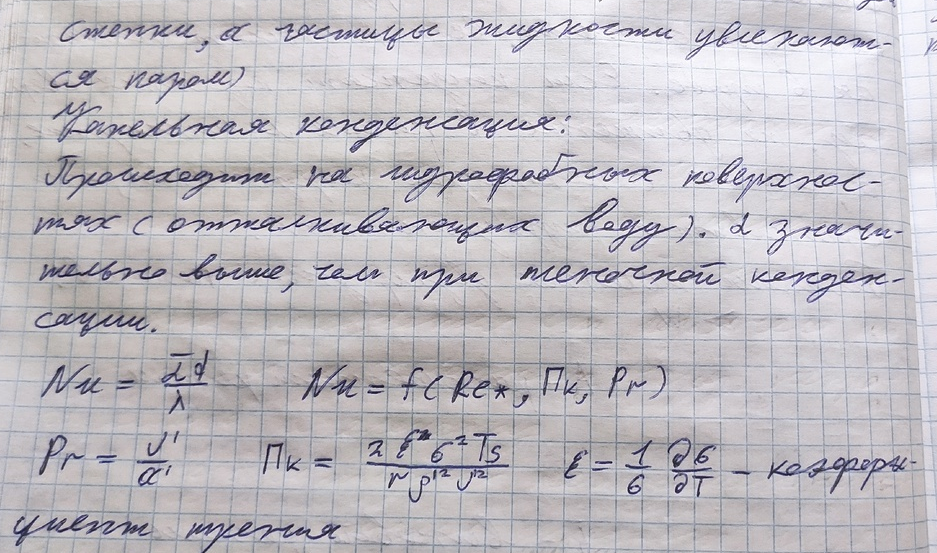 стенки, а частицы жидкости увлекают-
ся паром)
Капельная конденсация:
Происходит на гидрофобных поверхнос-
тях (отталкивающих воду). α значи-
тельно выше, чем при пленочной конден-
сации.
Nu = ᾱd/λ    Nu = f(Re*, Пк, Pr)
Pr = ν'/a'    Пк = 2 ε² σ² Ts / r ρ'² ν'²    ε = 1/σ ∂σ/∂T – коэффи-
циент трения